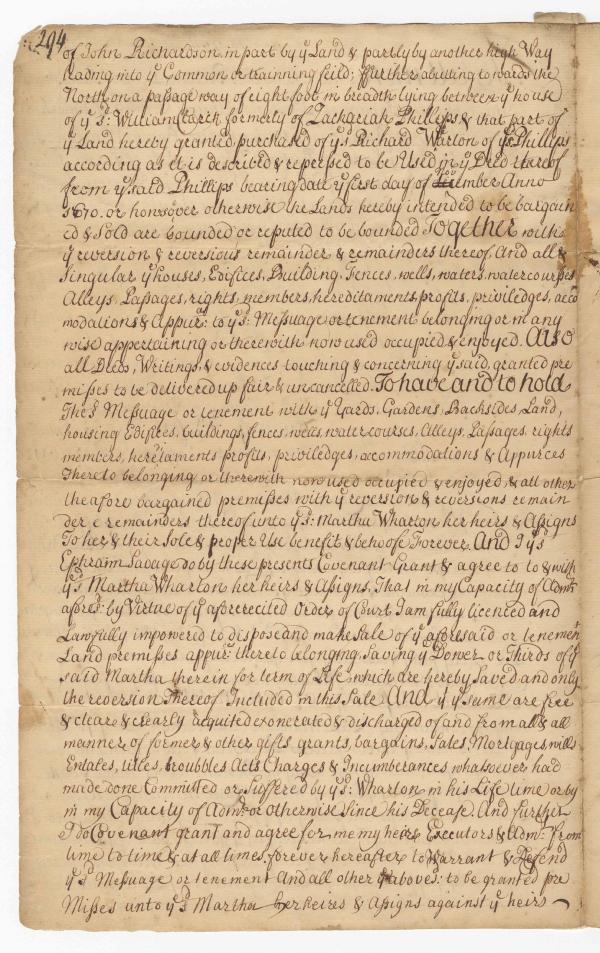 294
of John Richardson in part by ye Land & partly by another high Way
leading into ye Common or trainning feild; ffurther abutting towards the
North on a passage way of eight foot in breadth lying between ye house
of ye sd: William Clarck formerly of Zachariah Phillips & that part of
ye Land hereby granted purchased of ye sd Richard Warton of ye sd Phillips
according as it is described & repressed to be Used in ye Deed thereof
from ye said Phillips bearing date ye first day of December Anno
1670. or howsover otherwise the Lands hereby intended to be bargain
ed & Sold are bounded or reputed to be bounded Together with
ye reversion & reversions remainder & remainders thereof And all &
Singular ye houses, Edifices, Building, Fences, wells, waters, watercourses
Alleys, Passages, rights, members, hereditaments, profits, priviledges, acco
modations & Appurces: to ye sd: Messuage or tenement belonging or in any
wise appertaining or therewith now used occupied & enjoyed. Also
all Deeds, Writings, & evidences touching & concerning ye said, granted pre
misses to be delivered up fair & uncancelled. To have and to hold
The sd Messuage or tenement with ye Yards, Gardens, Backsides, Land,
housing Edifices, buildings, fences, wells, water courses, Alleys, Passages, rights
members, heretaments profits, priviledges, accommodations & Appurces
Thereto belonging or therewith now used occupied & enjoyed, & all other
the afore bargained premisses with ye reversion & reversions remain
der & remainders thereof unto ye sd: Martha Wharton her heirs & Assigns
To her & their Sole & proper Use benefit & behoofe Forever. And I ye sd
Ephraim Savage do by these presents Covenant Grant & agree to & with
ye sd Martha Wharton her heirs & Assigns, That in my Capacity of Admr
aforesd: by Virtue of ye aforerecited Order of Court I am fully licenced and
Lawfully impowered to dispose and make Sale of ye aforesaid or tenement
Land premisses appurs: thereto belonging, Saving ye Dower or Thirds of ye
said Martha therein for term of Life which are hereby Saved and only
the reversion Thereof Included in this Sale And yt ye same are free
& cleare & clearly acquited exonerated & discharged of and from all & all
manner of former & other gifts grants, bargains, Sales, Mortgages, wills
Entales, titles, troubbles Acts Charges & Incumberances whatsoever had
made done Committed or Suffered by ye sd: Wharton in his Life time or by
in my Capacity of Admr or otherwise Since his Decease. And further
I do Covenant grant and agree for me my heirs Executors & Admrs: From
time to time & at all times forever hereafter to Warrant & Defend
ye sd Messuage or tenement And all other ye abovesd: to be granted pre
Misses unto ye sd Martha her heires & Assigns against ye heirs